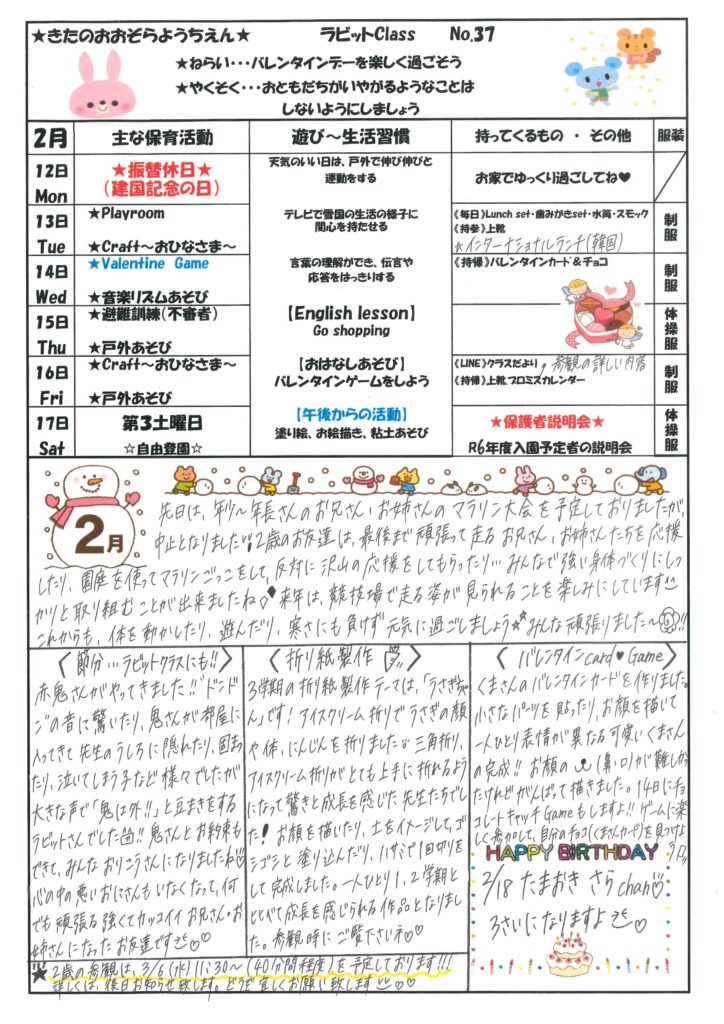 ★きたのおおぞらようちえん★ ラビットClass No.37
★ねらい・・・バレンタインデーを楽しく過ごそう
★やくそく・・・おともだちがいやがるようなことは
しないようにしましょう
2月 主な保育活動 遊び～生活習慣 持ってくるもの ・ その他 服装
12日 Mon
★振替休日★
(建国記念の日)
天気のいい日は、戸外で伸び伸びと
運動をする
お家でゆっくり過ごしてね♥
13日 Tue
★Playroom
★Craft～おひなさま～
テレビで雪国の生活の様子に
関心を持たせる
《毎日》Lunch set・歯みがきset・水筒・スモック
《持参》上靴
☆インターナショナルランチ(韓国)
制服
14日 Wed
★Valentine Game
★音楽リズムあそび
言葉の理解ができ、伝言や
応答をはっきりする
《持帰》バレンタインカード&チョコ
制服
15日 Thu
★避難訓練(不審者)
★戸外あそび
【English lesson】
Go shopping
体操服
16日 Fri
★Craft～おひなさま～
★戸外あそび
【おはなしあそび】
バレンタインゲームをしよう
《LINE》クラスだより、参観の詳しい内容
《持帰》上靴、プロミスカレンダー
制服
17日 Sat
第3土曜日
☆自由登園☆
【午後からの活動】
塗り絵、お絵描き、粘土あそび
★保護者説明会★
R6年度入園予定者の説明会
体操服
2月
先日は、年少～年長さんのお兄さん、お姉さんのマラソン大会を予定しておりましたが、
中止となりました!! 2歳のお友達は、最後まで頑張って走るお兄さん、お姉さんたちを応援
したり、園庭を使ってマラソンごっこをして、反対に沢山の応援をしてもらったり…みんなで強い身体づくりにしっ
かりと取り組むことが出来ましたね◇ 来年は、競技場で走る姿が見られることを楽しみにしています
これからも、体を動かしたり、遊んだり、寒さにも負けず元気に過ごしましょう☆ みんな頑張りました～!!
〈節分…ラビットクラスにも!!〉
赤鬼さんがやってきました!! "ドンド
ン"の音に驚いたり、鬼さんが部屋に
入ってきて先生のうしろに隠れたり、固まっ
たり、泣いてしまう子など様々でしたが
大きな声で「鬼は外!!」と豆まきをする
ラビットさんでした!! 鬼さんとお約束も
できて、みんなおりこうさんになりましたね♡
心の中の悪いおにさんもいなくなって、何
でも頑張る強くてカッコイイお兄さん、お
姉さんになったお友達です♡♡
〈折り紙製作〉
3学期の折り紙製作テーマは、「うさぎちゃ
ん」です! アイスクリーム折りでうさぎの顔
や体、にんじんを折りました。三角折り、
アイスクリーム折りがとても上手に折れるよう
になって驚きと成長を感じた先生たちでし
た! お顔を描いたり、土をイメージして、ゴ
シゴシと塗り込んだり、ハサミで1回切りを
して完成しました。一人ひとり1、2学期と
比べて成長を感じられる作品となりまし
た。参観時にご覧下さいネ♡
〈バレンタインcard♥Game〉
くまさんのバレンタインカードを作りました。
小さなパーツを貼ったり、お顔を描いて
一人ひとり表情が異なる可愛いくまさん
の完成!! お顔の(鼻・口)が難しかっ
たけれどがんばって描きました。14日にチョ
コレートキャッチGameもしますよ!! ゲームに楽
しく参加して、自分のチョコ(くまさんカード)を見つけよう
HAPPY BIRTHDAY
2/18 たまおき さらchan♡
3さいになりますよ♡
★2歳の参観は、3/6(水)11:30～(40分間程度)を予定しております!!!
詳しくは、後日お知らせ致します。どうぞ宜しくお願い致します♡♡